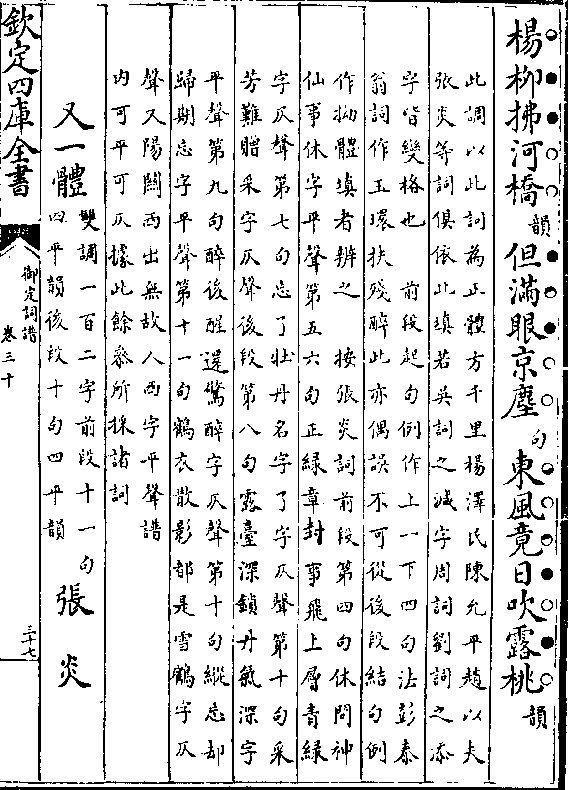 楊柳拂河橋韻但滿眼京塵句東風竟日吹露桃韻
此調以此詞為正體方千里楊澤民陳允平趙以夫
張炎等詞俱依此填若吳詞之減字周詞劉詞之添
字皆變格也　前段起句例作上一下四句法彭泰
翁詞作玉環扶殘醉此亦偶誤不可從後段結句例
作拗體填者辨之　按張炎詞前段第四句休問神
仙事休字平聲第五六句正緑章封事飛上層青緑
字仄聲第七句忘了牡丹名字了字仄聲第十句采
芳難贈采字仄聲後段第八句露臺深鎖丹氣深字
平聲第九句醉後醒還驚醉字仄聲第十句縱忘却
歸期忘字平聲第十一句鶴衣散影都是雪鶴字仄
聲又陽關西出無故人西字平聲譜
内可平可仄據此餘參所採諸詞
又一體
雙調一百二字前段十一句
四平韻後段十句四平韻
張炎
欽定四庫全書
御定詞譜
卷三十
三十七